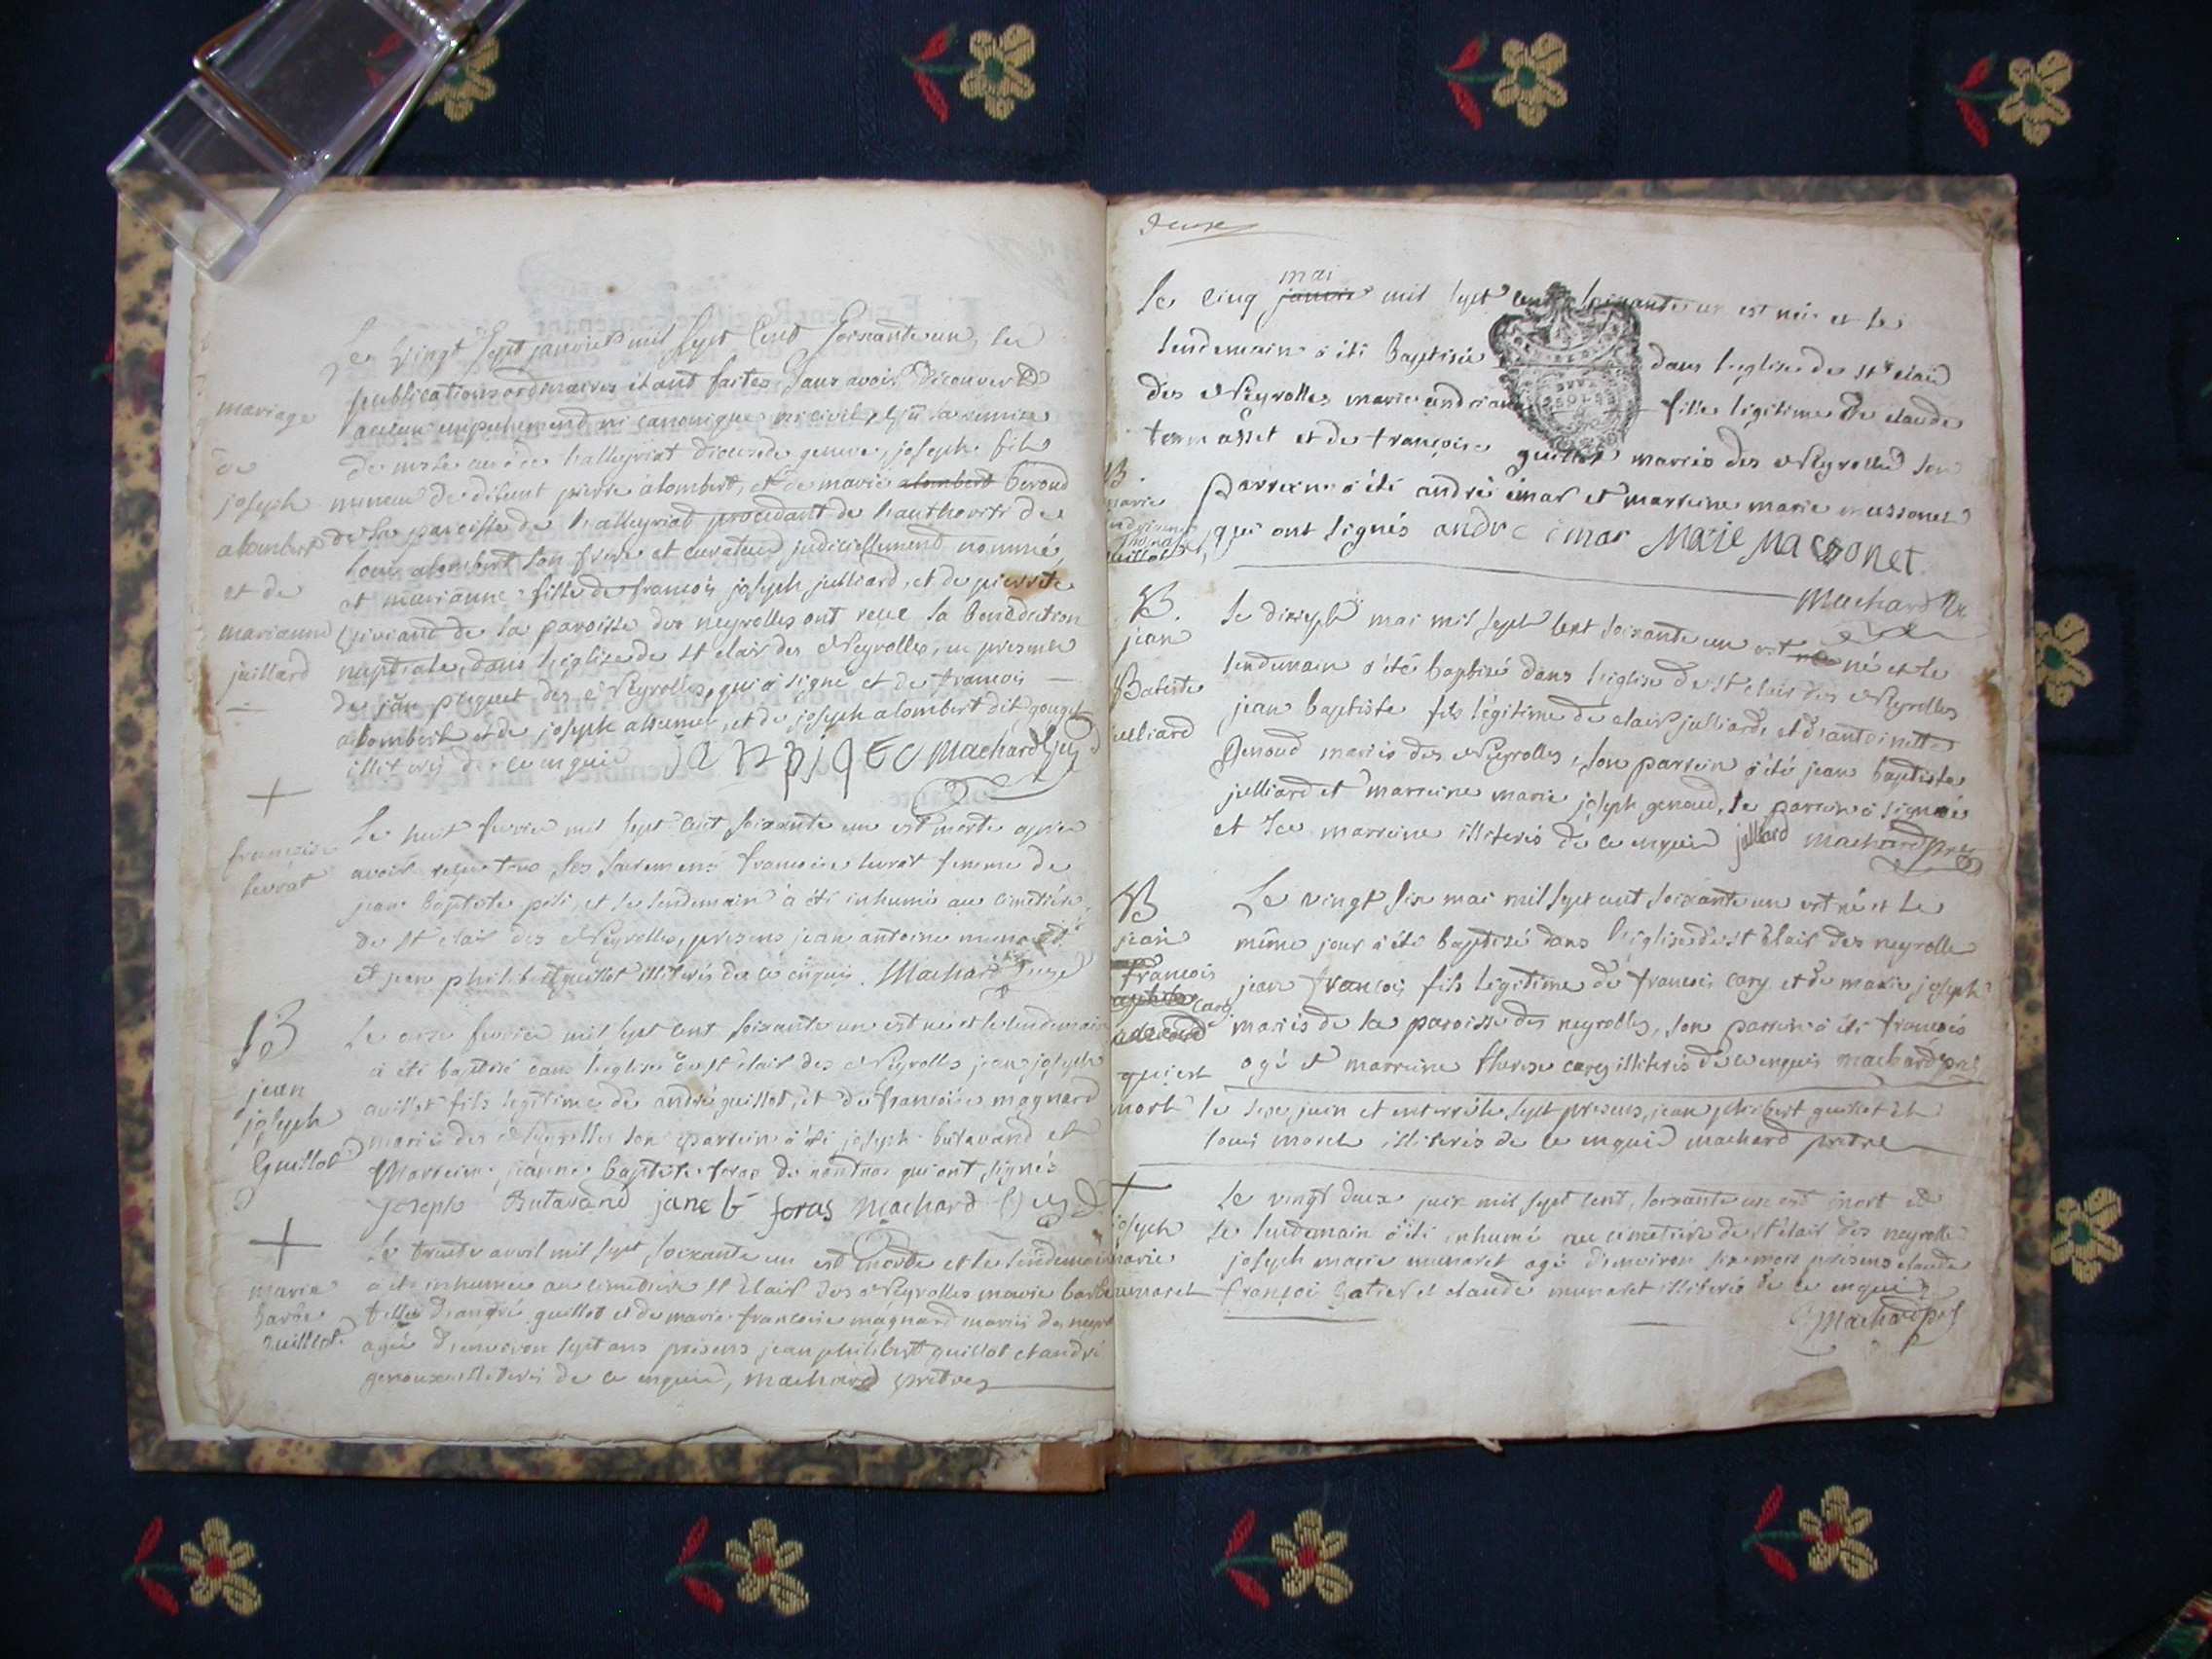 mariage
de
joseph
alombert
et de
marianne
juillard
Le vingt sept janvier mil sept cent soixante un, les
publications ordinaires étant faites sans avoir découvert
aucun empechement ni canonique ni civil, et vü la remise
de mr le curé de halleyriat diocese de geneve, joseph fils
mineur de défunt pierre alombert, et de marie alombert beroud
de la paroisse de halleyriat procedant de l'authorité de
louis alombert son frere et curateur judiciellement nommé,
et marianne fille de francois joseph julliard, et de pierrete
de la paroisse des neyrolles ont reçue la benediction
nuptiale, dans l'eglise de st clair des Neyrolles, en presence
de jean piquet des Neyrolles, qui a signé et de francois
alombert et de joseph et de joseph alombert dit
illiterés de ce enquis machard
francoise
levrat
Le huit fevrier mil sept cent soixante un est morte apprès
avoir reçue tous ses sacremens francoise levrat femme de
jean baptiste et le lendemain a été inhumé au cimetière
de st clair des Neyrolles, presens jean antoine
et jean philibert guillot illiterés de ce enquis. Machard
B
jean
joseph
Guillot
Le onze fevrier mil sept cent soixante un est né et le lendemain
a été baptisé dans l'eglise de st clair des Neyrolles jean joseph
guillot fils legitime de andré guillot, et de francoise magnard
mariés des Neyrolles son parrein a été joseph butavand et
Marreine jeanne baptiste foras de nantua qui ont signés
joseph Butavand jane b foras Machard
marie
barbe
guillot
Le trente avril mil sept soixante un est morte et le lendemain
a été inhumée au cimetiere st clair des Neyrolles marie barbe
fille d'andré guillot et de marie francoise magnard mariés des neyrol
agée d'environ sept ans présens jean philibert guillot et andré
genoux illiterés de ce enquis, machard pretre
deuxe
B
marie
guillot
Le cinq janvier mai mil sept cent soixante un est née et le
lendemain a été baptisée dans l'eglise de st clair
des Neyrolles marie andriane fille légitime de claude
tommasset et de françoise guillot mariés des Neyrolles son
parrein a été andré émar et marreine marie massonet
qui ont signés andre emar Marie Massonet
Machard
B.
jean
Batiste
julliard
Le dixsept mai mil sept cent soixante un est né et le
lendemain a été baptisé dans l'eglise de st clair des Neyrolles
jean baptiste fils légitime de clair julliard, et d'antoinette
Genoud mariés des Neyrolles, son parrein a été jean baptiste
julliard et marreine marie joseph genoud, le parrein a signé
et la marreine illiterés de ce enquis julliard machard pre
B
jean
francois
cary
qui est
mort
Le vingt six mai mil sept cent soixante un est né et le
même jour a été baptisé dans l'église de st clair des neyrolle
jean françois fils légitime de francois cary et de marie joseph
mariés de la paroisse des neyrolles, son parrein a été francois
ogé et marreine therese carey illiterés de ce enquis machard pre
le seize juin et enterré le sept presens, jean philibert guillot et
louis morel illiterés de ce enquis machard pretre
joseph
marie
munaret
Le vingt deux juin mil sept cent, soixante un est mort et
le lendemain a été inhumé au cimetiere de st clair des neyrolle
joseph marie munaret agé d'environ six mois présens claude
françoi Gatier et claude munaret illiterés de ce enquis
Machard pre